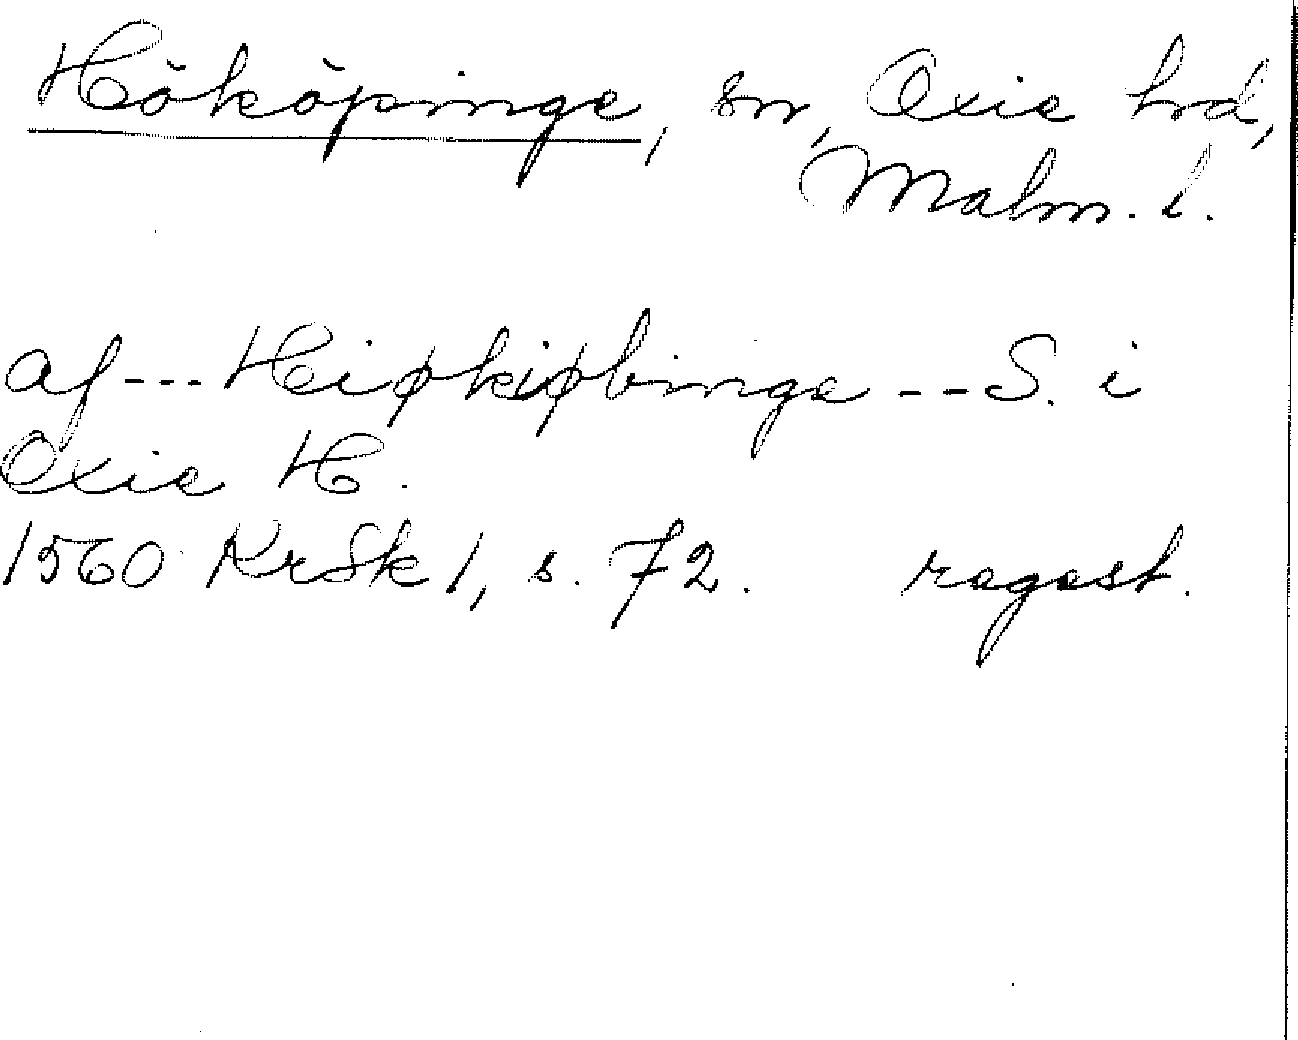 Hököpinge, sn, Oxie hd,
Malm. l.
af --- Hiøkiøbinge -- S. i
Oxie H.
1560 KrSk 1, s. 72. regest.